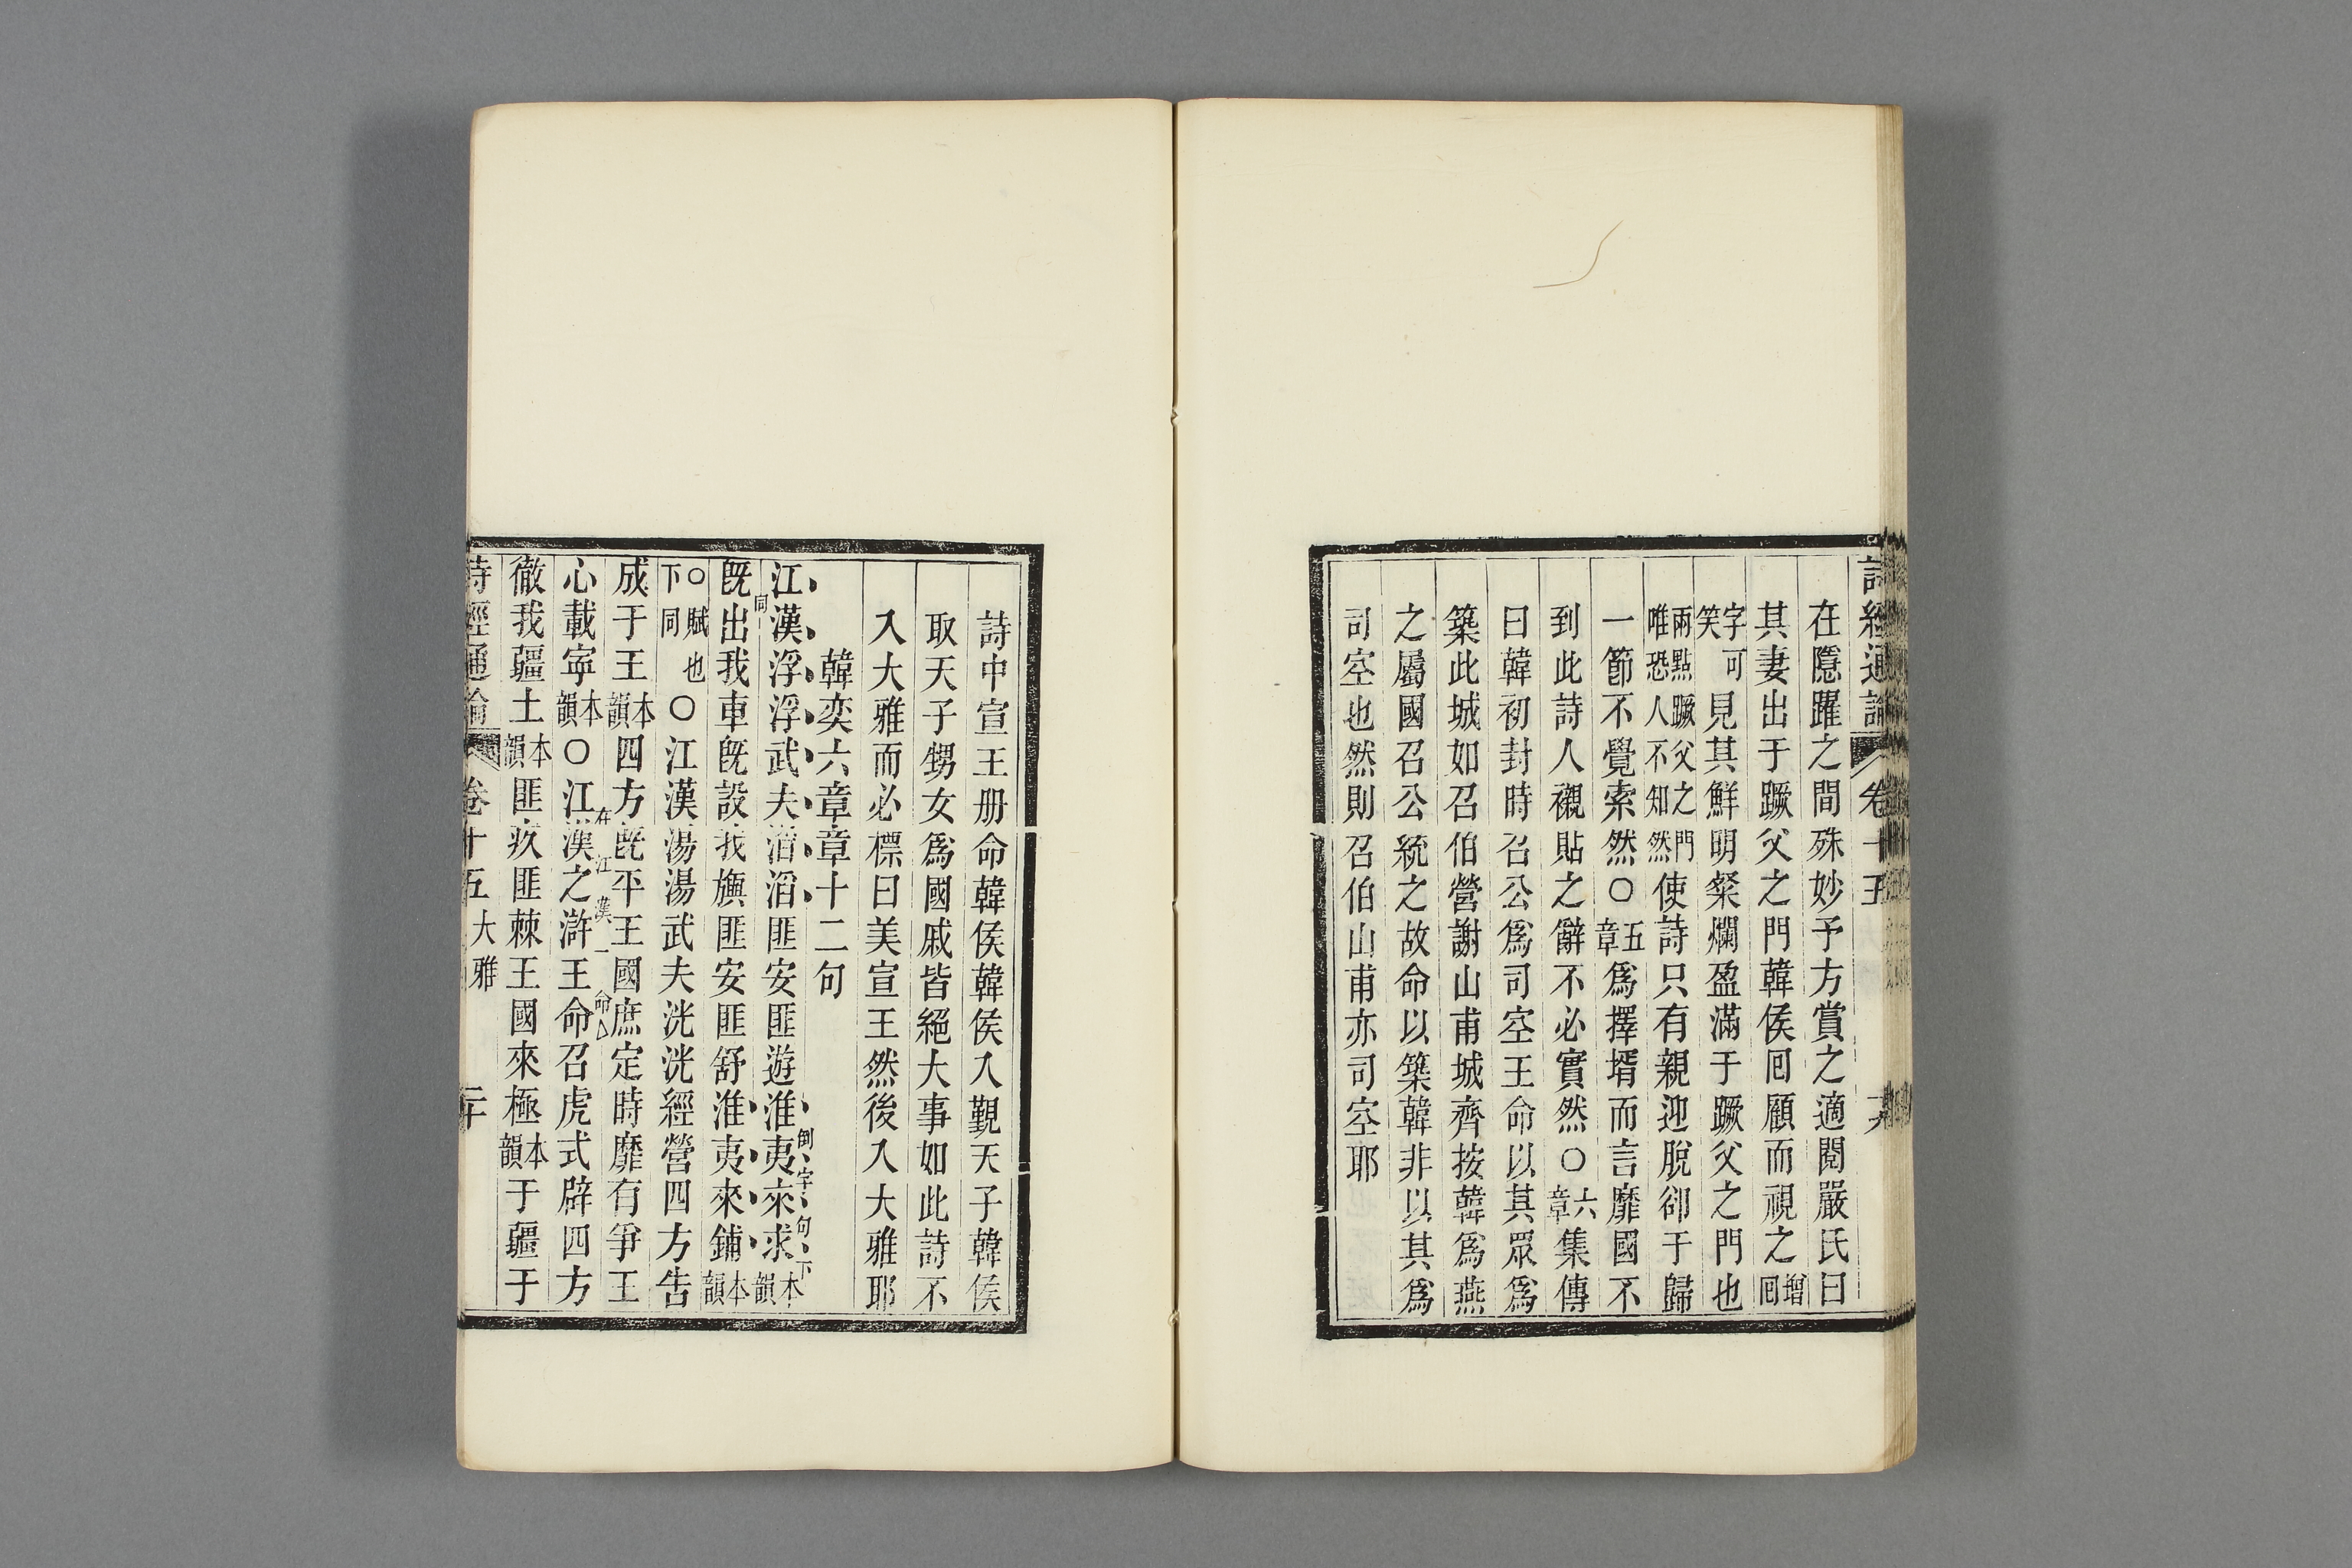 詩經通論 卷十五 十九
在隱躍之間殊妙予方賞之適閱嚴氏曰
其妻出于蹶父之門韓侯囘顧而視之增囘
字可笑見其鮮明粲爛盈滿于蹶父之門也
兩點蹶父之門唯恐人不知然使詩只有親迎脫卻于歸
一節不覺索然〇五章爲擇壻而言靡國不
到此詩人襯貼之辭不必實然〇六章集傳
曰韓初封時召公爲司空王命以其眾爲
築此城如召伯營謝山甫城齊按韓爲燕
之屬國召公統之故命以築韓非以其爲
司空也然則召伯山甫亦司空耶
詩中宣王册命韓侯韓侯入覲天子韓侯
取天子甥女爲國戚皆絕大事如此詩不
入大雅而必標曰美宣王然後入大雅耶
韓奕六章章十二句
江漢浮浮武夫滔滔匪安匪遊淮夷來求本韻
倒字句下同
旣出我車旣設我旟匪安匪舒淮夷來鋪本韻
〇賦也下同〇江漢湯湯武夫洸洸經營四方告
成于王本韻四方旣平王國庶定時靡有爭王
心載寧本韻〇江漢之滸王命召虎式辟四方
在江漢一命
徹我疆土本韻匪疚匪棘王國來極本韻于疆于
詩經通論 卷十五 大雅 二十